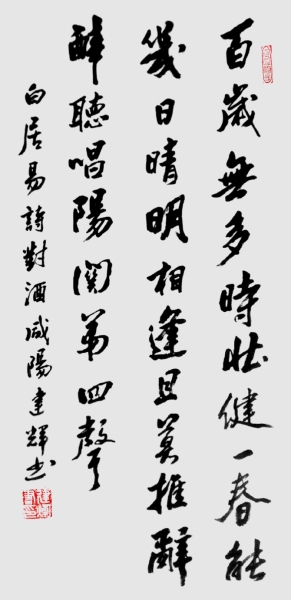 百歲無多時壯健一春能
幾日晴明相逢且莫推辭
醉聽唱陽關第四聲
白居易詩對酒咸陽建輝书